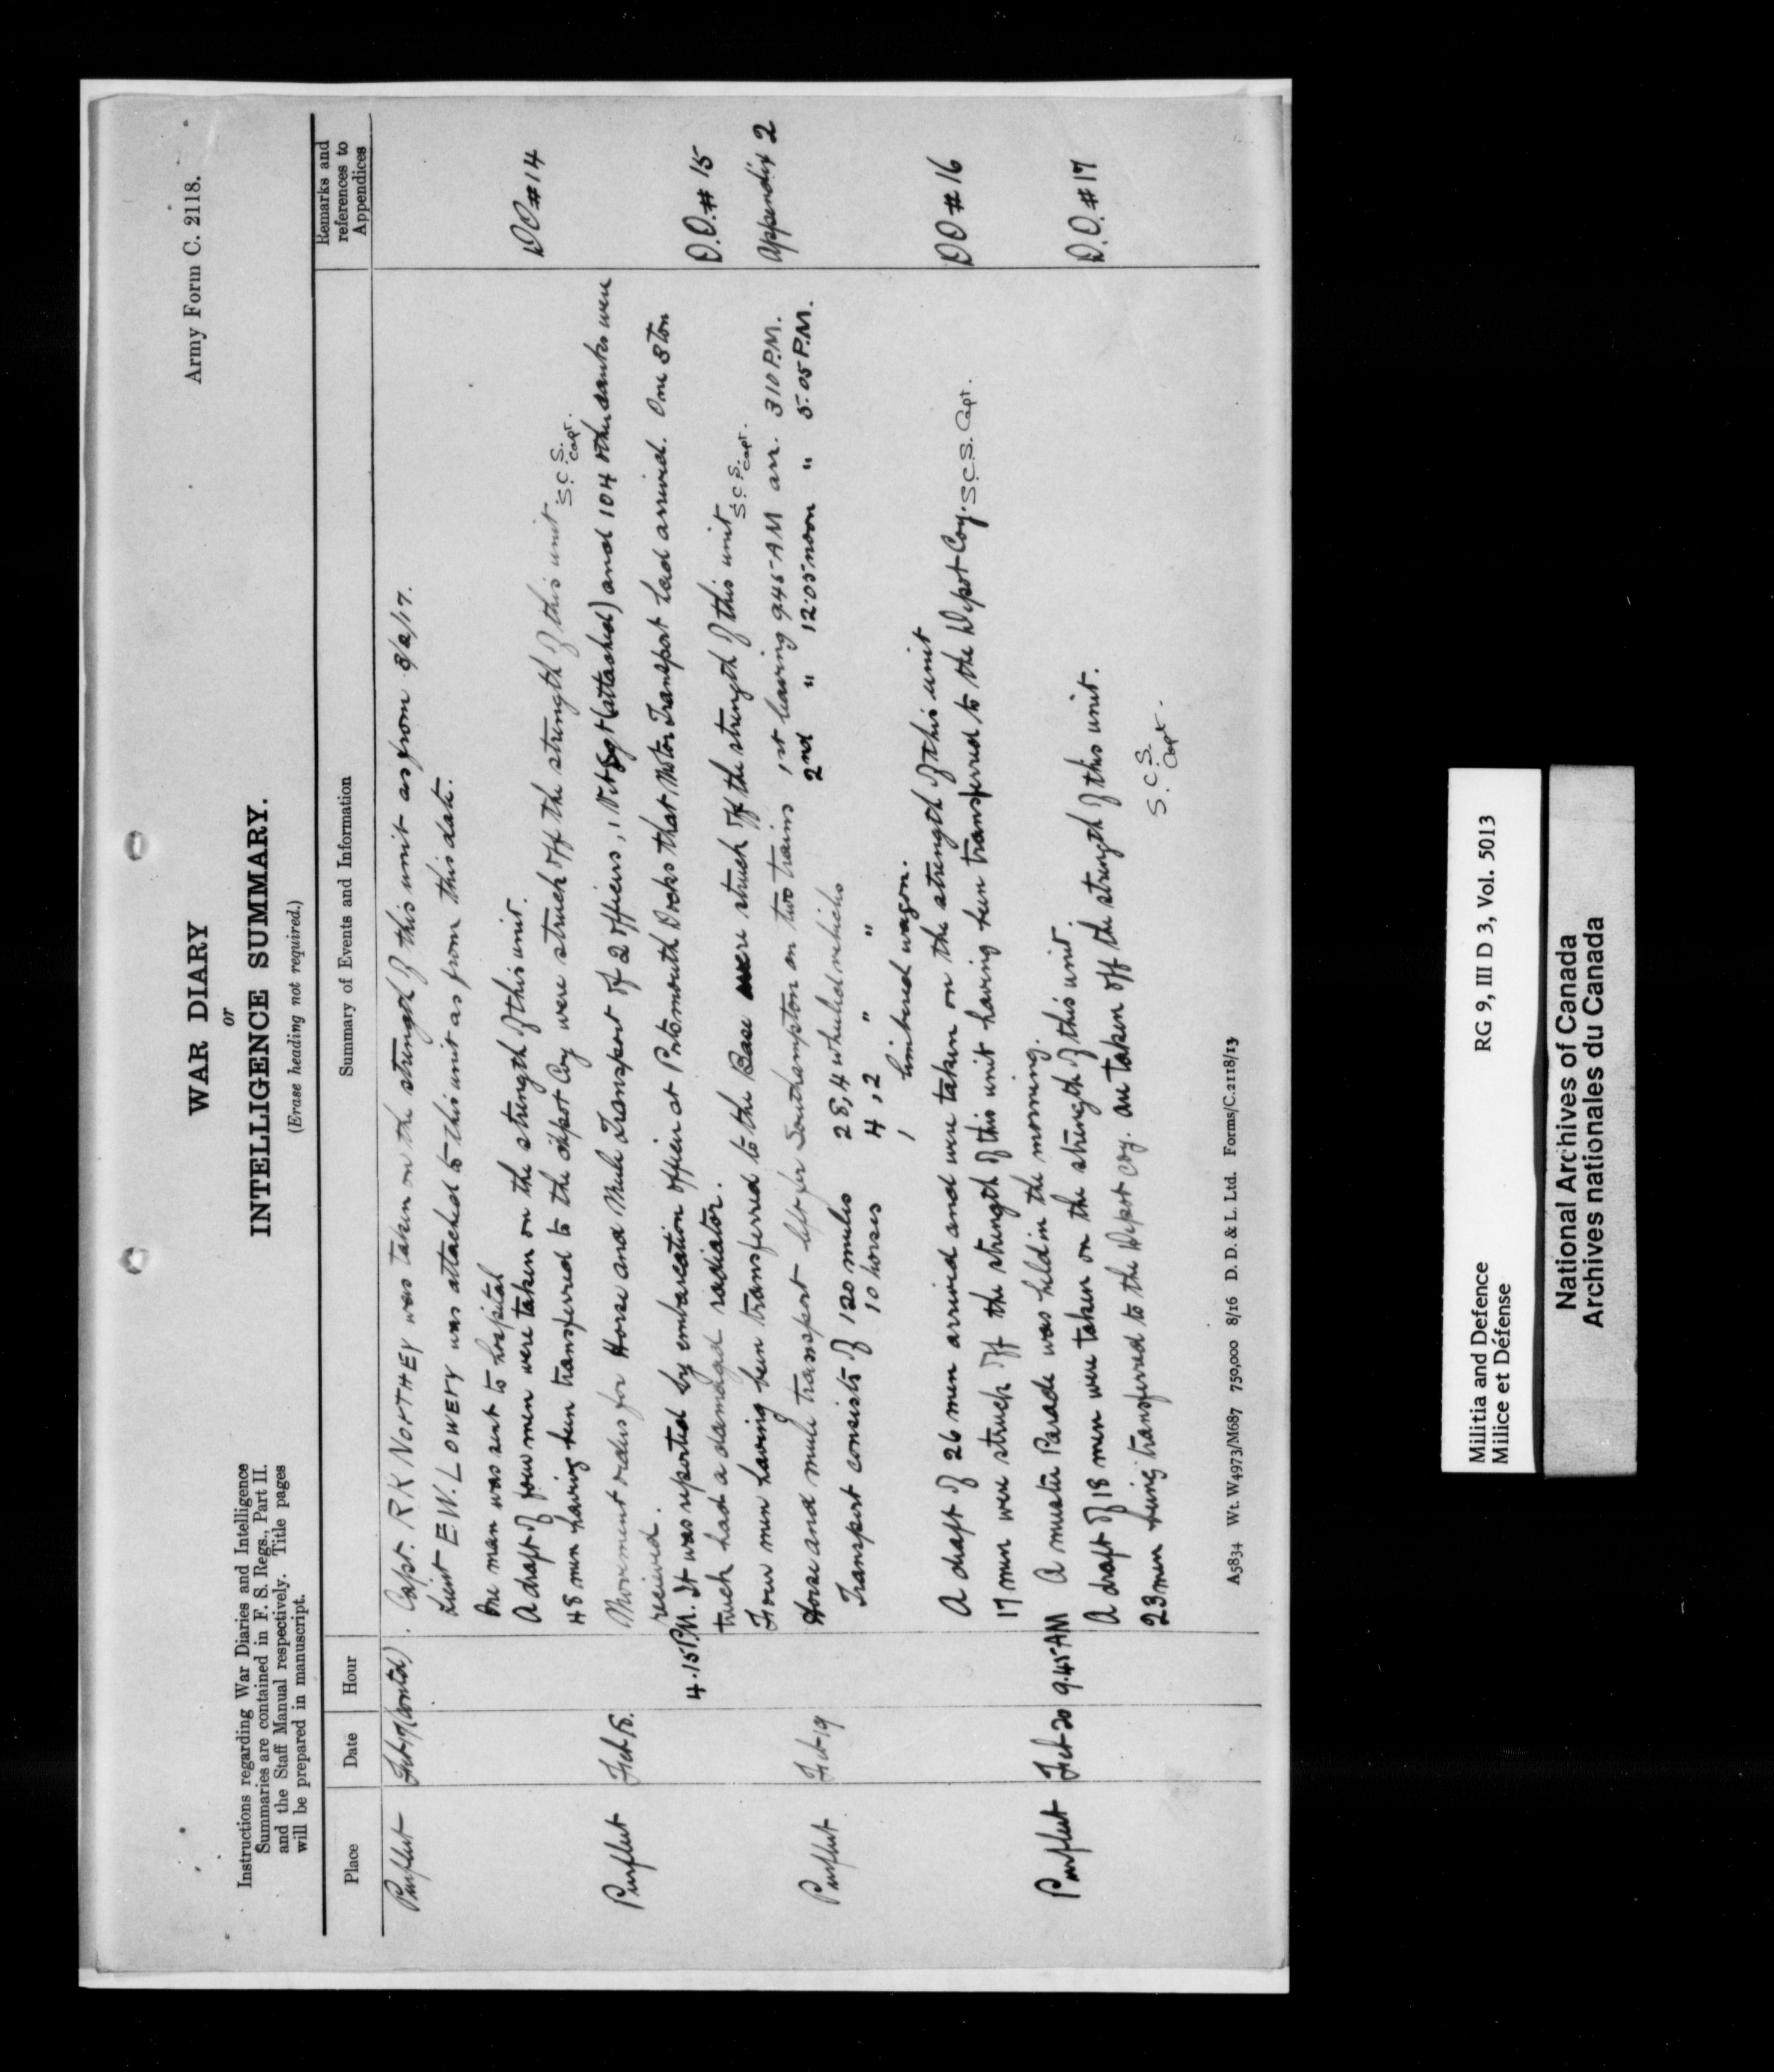 Army Form C. 2118.
WAR DIARY
or
INTELLIGENCE SUMMARY.
(Erase heading not required.)
Instructions regarding War Diaries and Intelligence
Summaries are contained in F. S. Regs., Part II.
and the Staff Manual respectively. Title pages
will be prepared in manuscript.
Place Date Hour Summary of Events and Information Remarks and references to Appendices
Purfleet Feb 17 (Contd). Capt. R K NORTHEY was taken on the strength of this unit as from 8/2/17.
Lieut E.W. LOWERY was attached to this unit as from this date.
One man was sent to hospital
A draft of four men were taken on the strength of this unit. DO #14
48 men having been transferred to the depot Coy were struck off the strength of this unit S.C.S. Capt.
Purfleet Feb 18. Movement orders for Horse and Mule Transport of 2 officers, 1 Vet Sgt (attached) and 104 other ranks were
received.
4.15 P.M. It was reported by embarcation officer at Portsmouth Docks that Motor Transport had arrived. One 3 ton
truck had a damaged radiator. D.O. # 15
Four men having been transferred to the Base were struck off the strength of this unit S.C.S. Capt.
Purfleet Feb 19 Horse and mule transport left for Southampton on two trains 1st leaving 9.45 AM arr. 3 10 P.M. Appendix 2
2nd " 12.05 noon " 5.05 P.M.
Transport consists of 120 mules 28, 4 wheeled vehicles
10 horses 4, 2 " "
1 limbered wagon.
A draft of 26 men arrived and were taken on the strength of this unit DO # 16
17 men were struck off the strength of this unit having been transferred to the Depot Coy. S.C.S. Capt.
Purfleet Feb 20 9.45 AM A muster Parade was held in the morning.
A draft of 18 men were taken on the strength of this unit. D.O. # 17
23 men being transferred to the Depot Coy. are taken off the strength of this unit.
S.C.S. Capt.
A5834 Wt. W4973/M687 750,000 8/16 D. D. & L. Ltd. Forms/C.2118/13
Militia and Defence RG 9, III D 3, Vol. 5013
Milice et Défense
National Archives of Canada
Archives nationales du Canada